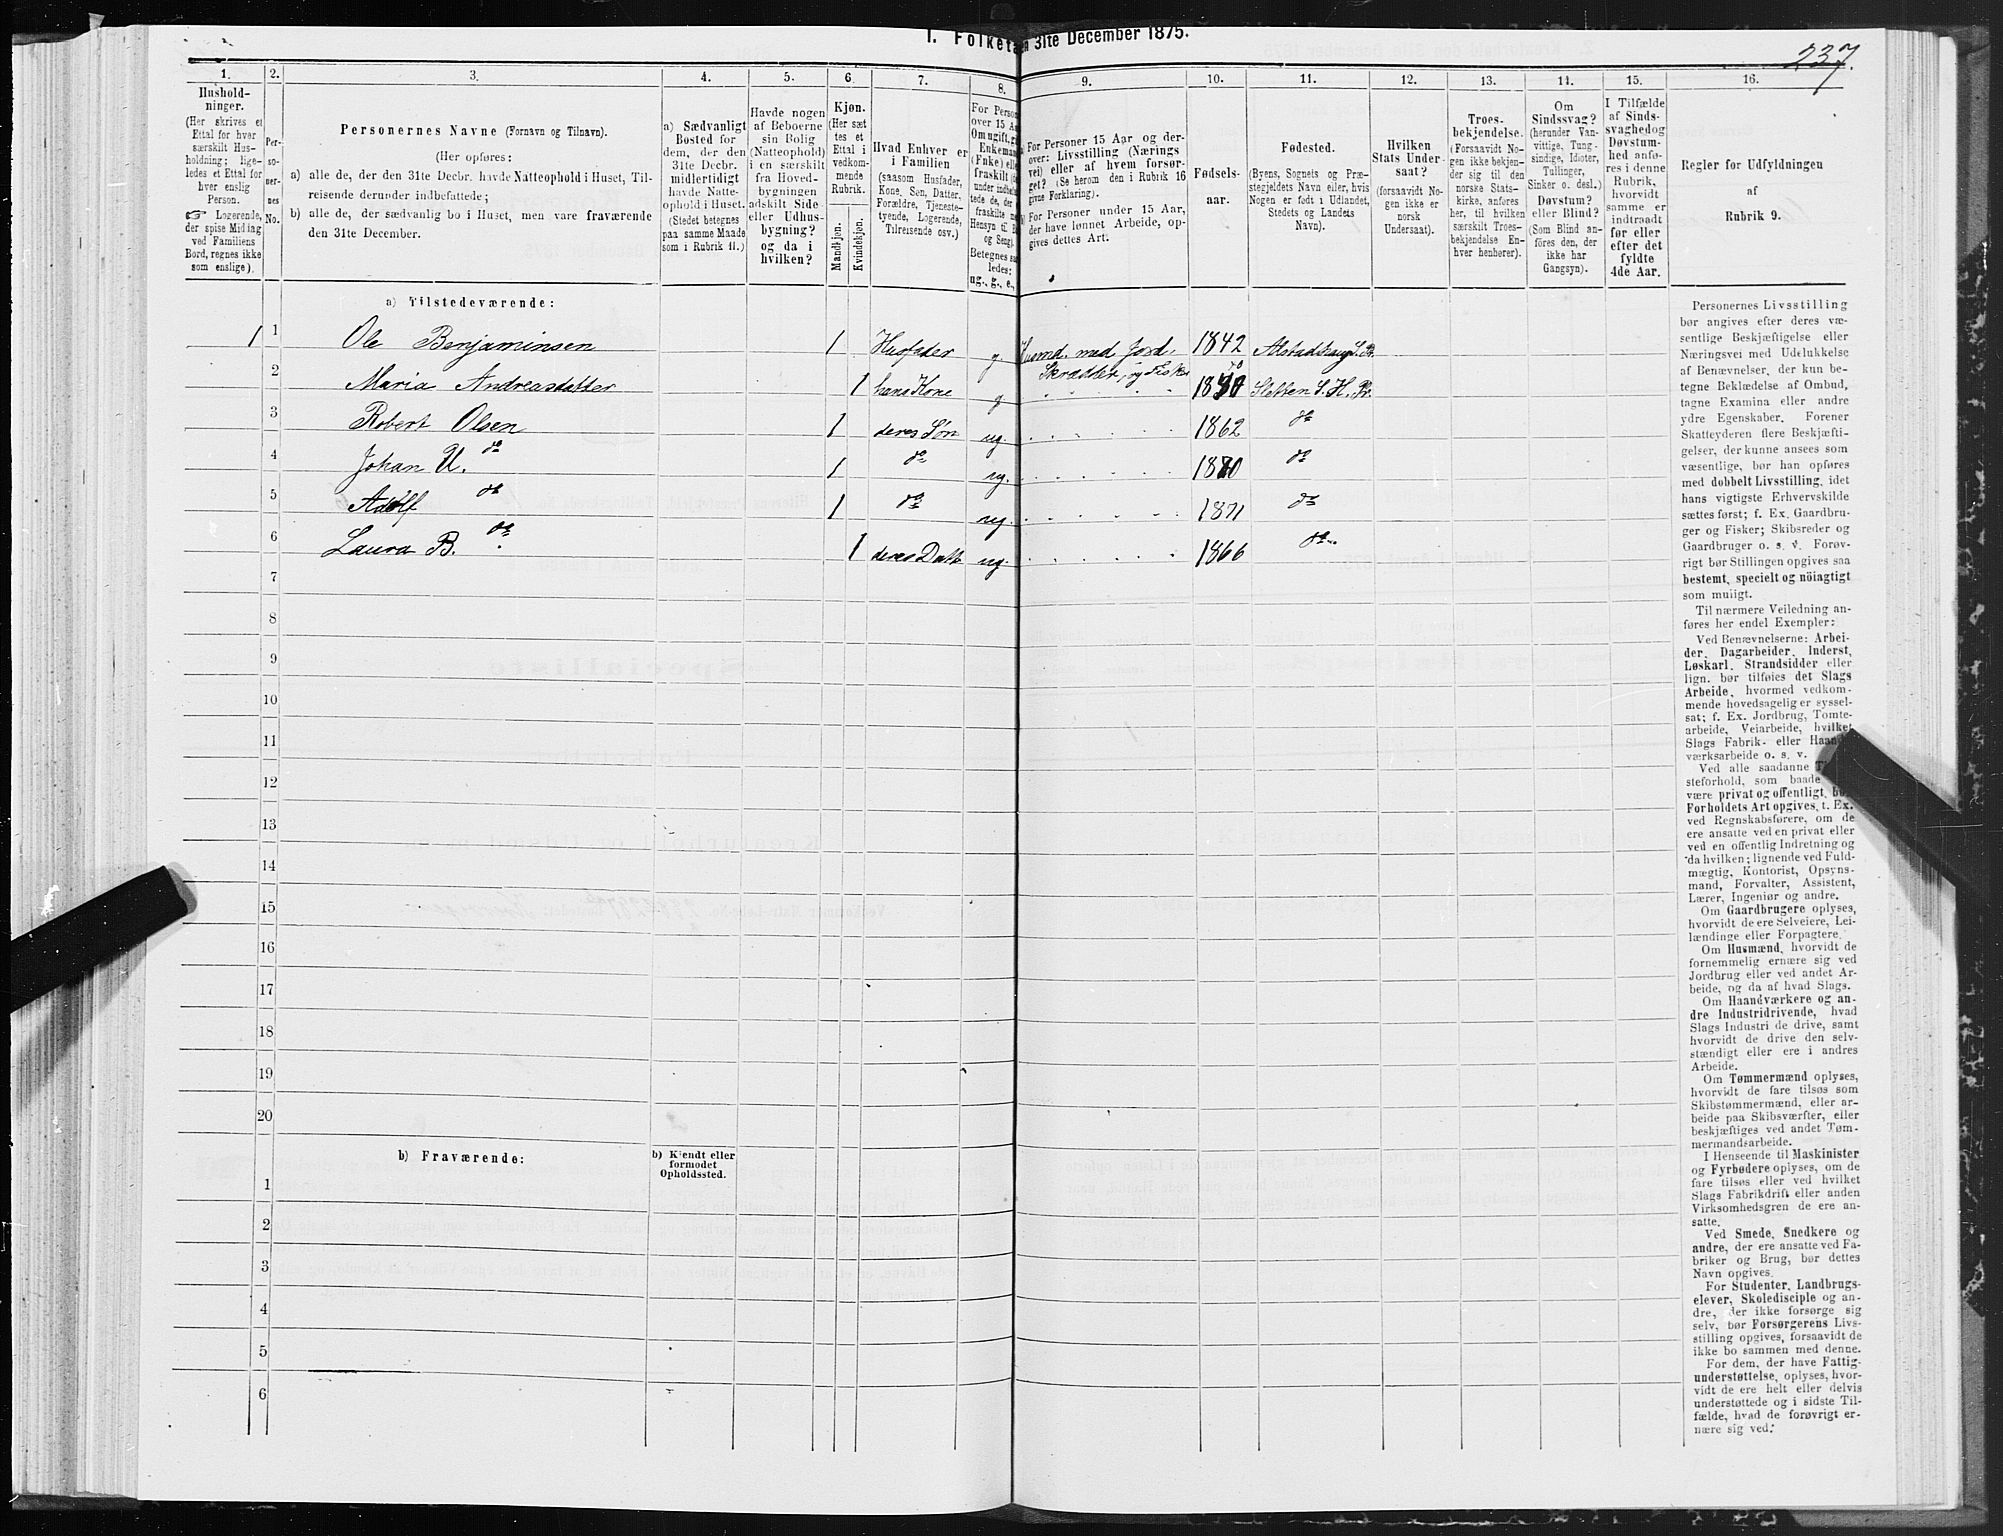 I. Folketa 31te December 1875.
237.
1.
Hushold-
ninger.
(Her skrives et
Ettal for hver
særskilt Hus-
holdning; lige-
ledes et Ettal for
hver enslig
Person.
☞ Logerende,
der spise Middag
ved Familiens
Bord, regnes ikke
som enslige).
2.
Per-
so-
ner-
nes
No.
3.
Personernes Navne (Fornavn og Tilnavn).
(Her opføres:
a) alle de, der den 31te Decbr. havde Natteophold i Huset, Til-
reisende derunder indbefattede;
b) alle de, der sædvanlig bo i Huset, men vare fraværende
den 31te December.
4.
a) Sædvanligt
Bosted for
dem, der den
31te Decbr.
midlertidigt
havde Natte-
ophold i Huset.
(Stedet betegnes
paa samme Maade
som i Rubrik 11.)
5.
Havde nogen
af Beboerne
sin Bolig
(Natteophold)
i en særskilt
fra Hoved-
bygningen
adskilt Side-
eller Udhus-
bygning?
og da i
hvilken?
6.
Kjøn.
(Her sæt
tes et
Ettal i
vedkom-
mende
Rubrik.
Mandkjøn.
Kvindekjøn.
7.
Hvad Enhver er
i Familien
(saasom Husfader,
Kone, Søn, Datter,
Forældre, Tjeneste-
tyende, Logerende,
Tilreisende osv.)
8.
For Person
over 15 Aa
Om ugift, gi
Enkemand
(Fnke) elle
fraskilt
ug., g., e.,
9.
For Personer 15 Aar og der-
over: Livsstilling (Nærings
vei) eller af hvem forsør-
get? (Se herom den i Rubrik 16
givne Forklaring).
For Personer under 15 Aar,
der have lønnet Arbeide, op-
gives dettes Art.
10.
Fødsels-
aar.
11.
Fødested.
(Byens, Sognets og Præ-
stegjeldets Navn eller, hvis
Nogen er født i Udlandet,
Stedets og Landets
Navn).
12.
Hvilken
Stats Under-
saat?
(forsaavidt No-
gen ikke er
norsk
Undersaat).
13.
Troes-
bekjendelse.
(Forsaavidt No-
gen ikke bekjen-
der sig til den
norske Stats-
kirke, anføres
her, til hvilken
særskilt Troes-
bekjendelse En-
hver henhører).
14.
Om
Sindssvag?
(herunder Van-
vittige, Tung-
sindige, Idioter,
Tullinger,
Sinker o. desl.)
Døvstum?
eller Blind?
(Som Blind an-
føres den, der
ikke har
Gangsyn).
15.
I Tilfælde
af Sinds-
svaghedog
Døvstum-
hed anfø-
res i denne
Rubrik,
hvorvidt
samme er
indtraadt
før eller
efter det
fyldte
4de Aar.
16.
Regler for Udfyldningen
af
Rubrik 9.
a) Tilstedeværende:
1 1 Ole Benjaminsen 1 Husfader g. Husmd. med Jord, Skrædder, og Fisker 1842 Alstadhaug S. Pr.
2 Maria Andreasdatter 1 hans Kone g 1840 Stetten S. H. Pr.
3 Robert Olsen 1 deres Søn ug. 1862 do
4 Johan U. do 1 do ug. 1870 do
5 Adolf do 1 do ug. 1871 do
6 Laura B. do 1 deres Datt ug. 1866 do
7
8
9
10
11
12
13
14
15
16
17
18
19
20
b) Fraværende:
b) Kjendt eller
formodet
Opholdssted.
1
2
3
4
5
6
Personernes Livsstilling
bør angives efter deres væ-
sentlige Beskjæftigelse eller
Næringsvei med Udelukkelse
af Benævnelser, der kun be-
tegne Beklædelse af Ombud,
tagne Examina eller andre
ydre Egenskaber. Forener
Skatteyderen flere Beskjæfti-
gelser, der kunne ansees som
væsentlige, bør han opføres
med dobbelt Livsstilling, idet
hans vigtigste Erhvervskilde
sættes først; f. Ex. Gaardbru-
ger og Fisker; Skibsreder og
Gaardbruger o. s. v. Forøv-
rigt bør Stillingen opgives saa
bestemt, specielt og nöiagtigt
som muligt.
Til nærmere Veiledning an-
føres her endel Exempler:
Ved Benævnelserne: Arbei-
der, Dagarbeider, Inderst,
Løskarl, Strandsidder eller
lign. bør tilføies det Slags
Arbeide, hvormed vedkom-
mende hovedsagelig er syssel-
sat; f. Ex. Jordbrug, Tomte-
arbeide, Veiarbeide, hvilket
Slags Fabrik- eller Haand
værksarbeide o. s. v.
Ved alle saadanne
steforhold, som baade
være privat og offentlig, bør
Forholdets Art opgives, t. Ex.
ved Regnskabsførere, om de
ere ansatte ved en privat eller
ved en offentlig Indretning og
da hvilken; lignende ved Fuld-
mægtig, Kontorist, Opsyns-
mand, Forvalter, Assistent,
Lærer, Ingeniør og andre.
Om Gaardbrugere oplyses,
hvorvidt de ere Selveiere, Lei-
lændinge eller Forpagtere.
Om Husmænd, hvorvidt de
fornemmelig ernære sig ved
Jordbrug eller ved andet Ar-
beide, og da af hvad Slags.
Om Haandværkere og an-
dre Industridrivende, hvad
Slags Industri de drive, samt
hvorvidt de drive den selv-
stændigt eller ere i andres
Arbeide.
Om Tømmermænd oplyses,
hvorvidt de fare tilsøs som
Skibstømmermænd, eller ar-
beide paa Skibsværfter, eller
beskjæftiges ved andet Tøm-
mermandsarbeide.
I Henseende til Maskinister
og Fyrbødere oplyses, om de
fare tilsøs eller ved hvilket
Slags Fabrikdrift eller anden
Virksomhedsgren de ere an-
satte.
Ved Smede, Snedkere og
andre, der ere ansatte ved Fa-
briker og Brug, bør dettes
Navn opgives.
For Studenter, Landbrugs-
elever, Skoledisciple og an-
dre, der ikke forsørge sig
selv, bør Forsørgerens Livs-
stilling opgives, forsaavidt de
ikke bo sammen med denne.
For dem, der have Fattig-
understøttelse, oplyses, hvor-
vidt de ere helt eller delvis
understøttede og i sidste Til-
fælde, hvad de forøvrigt er-
nære sig ved.